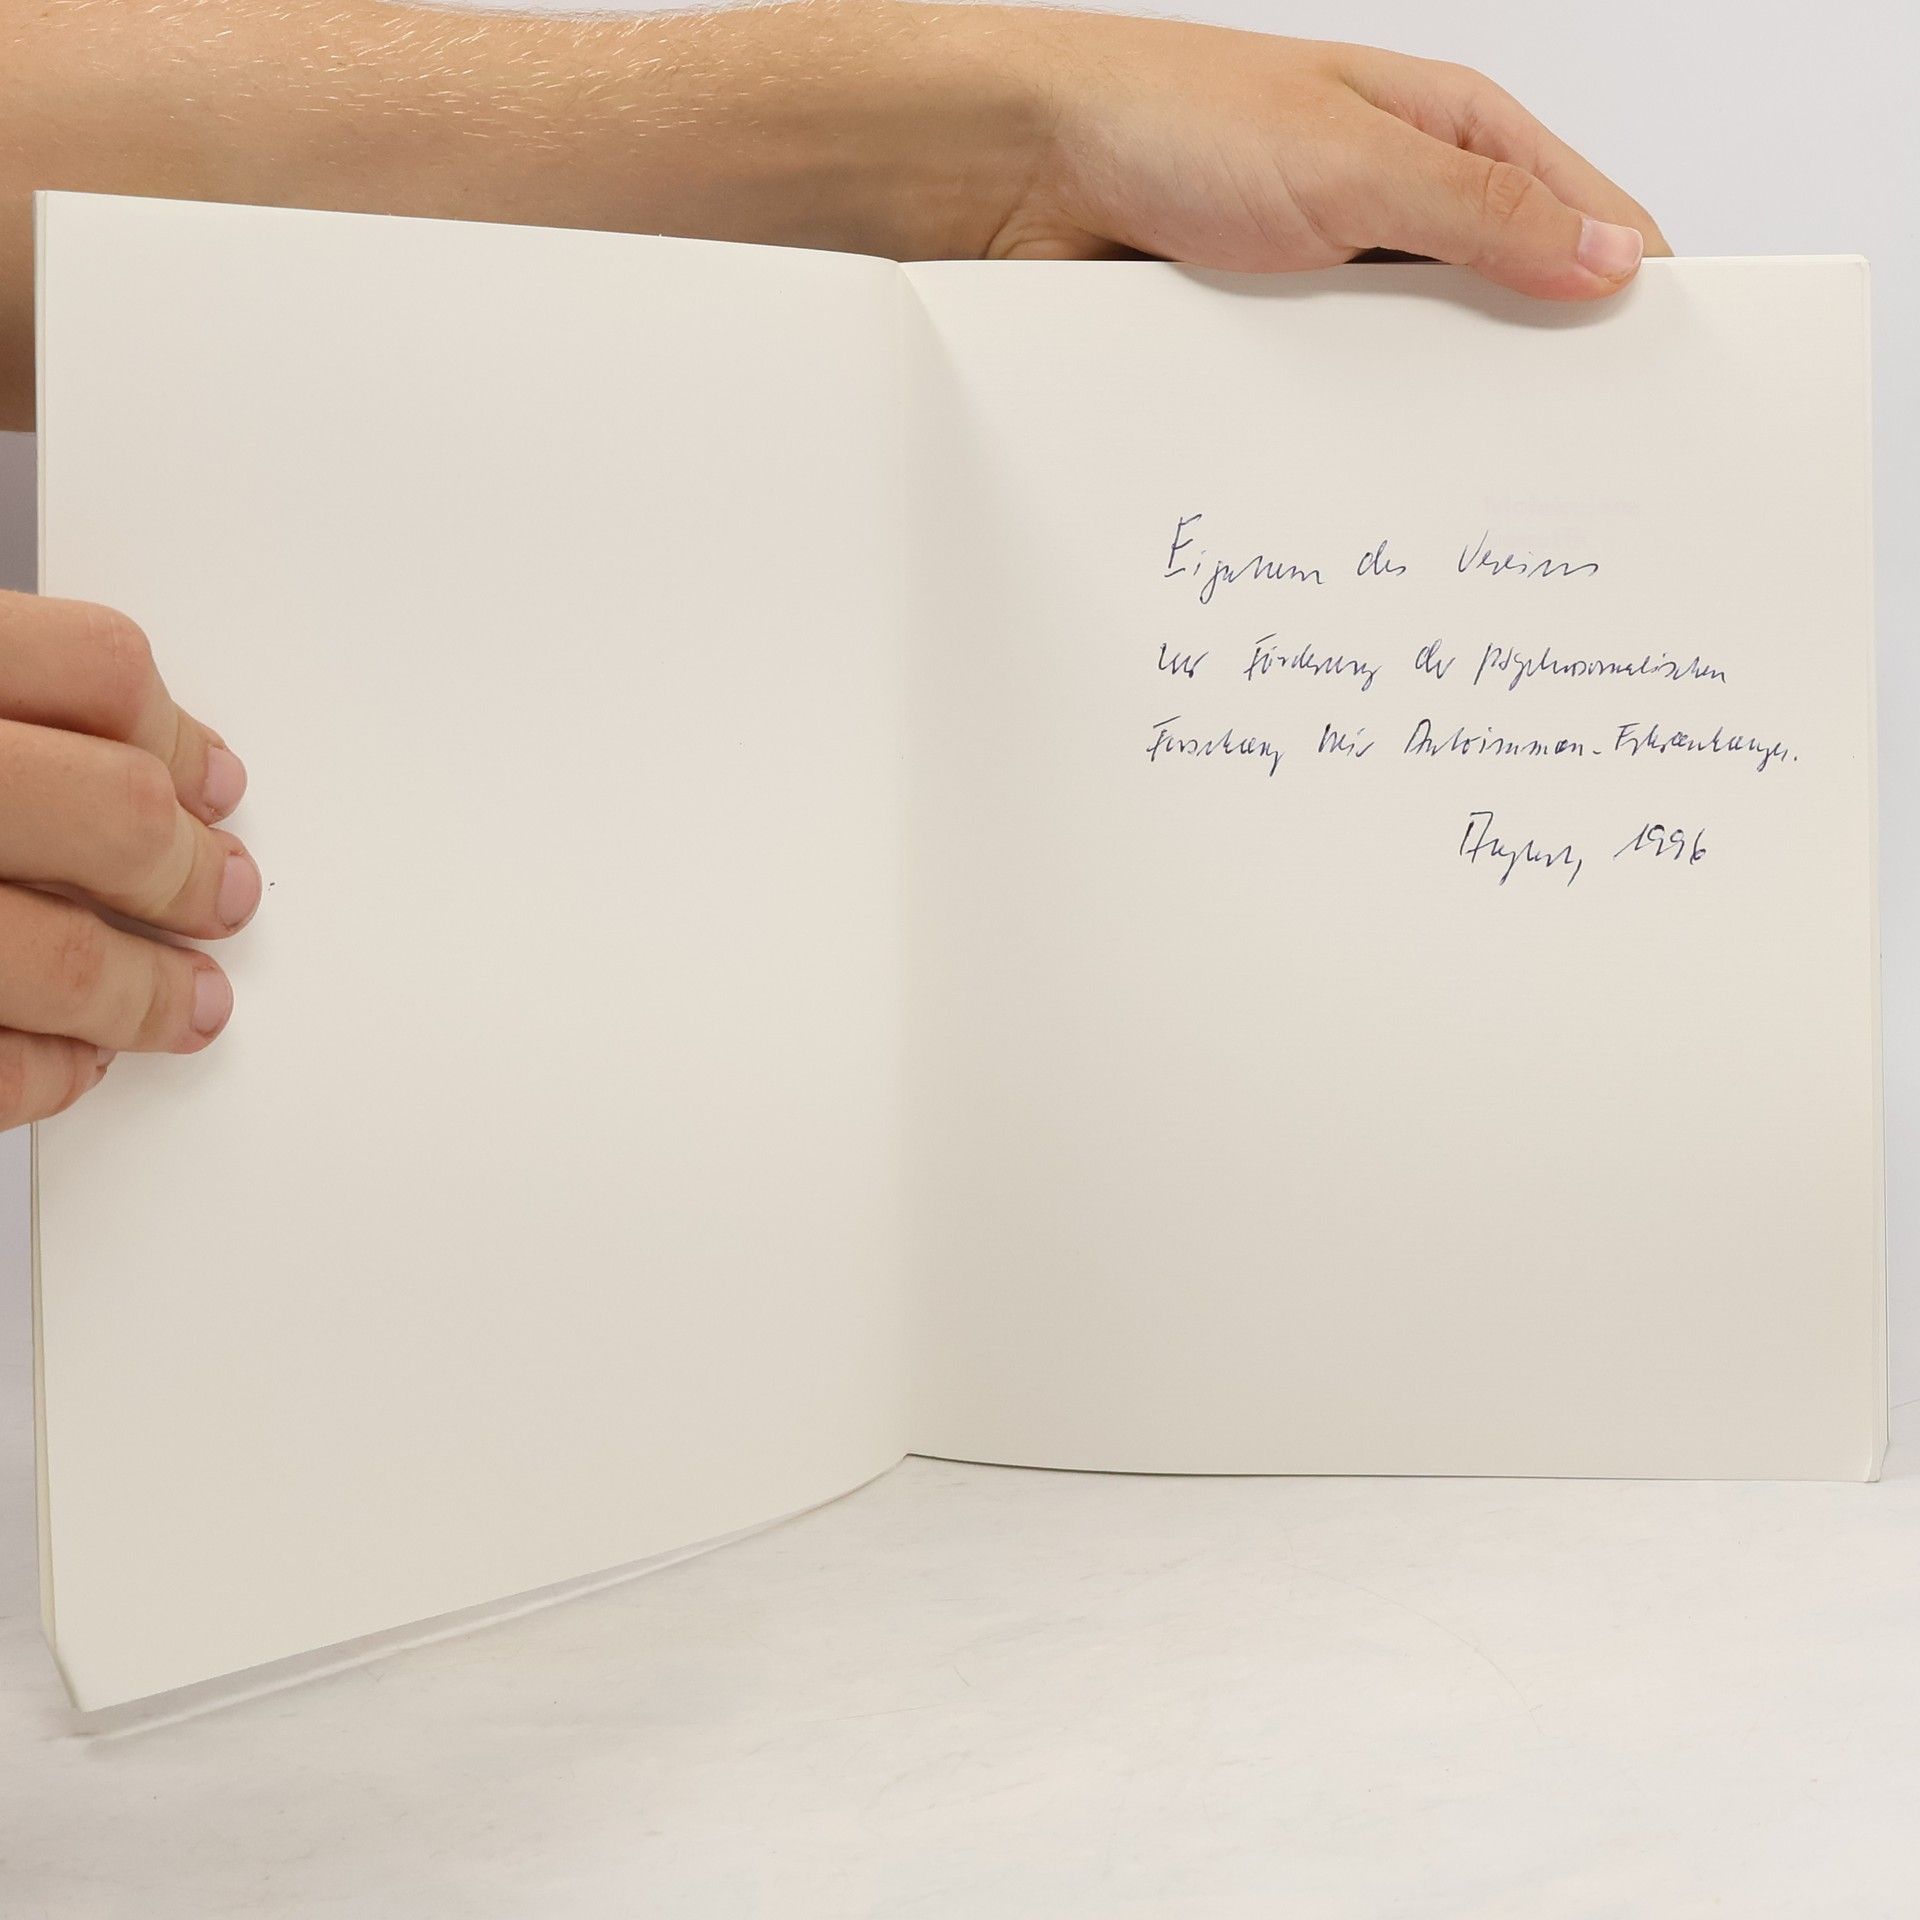 Eigentum des Vereins
zur Förderung der psychosomatischen
Forschung bei Autoimmun-Erkrankungen.
August, 1996